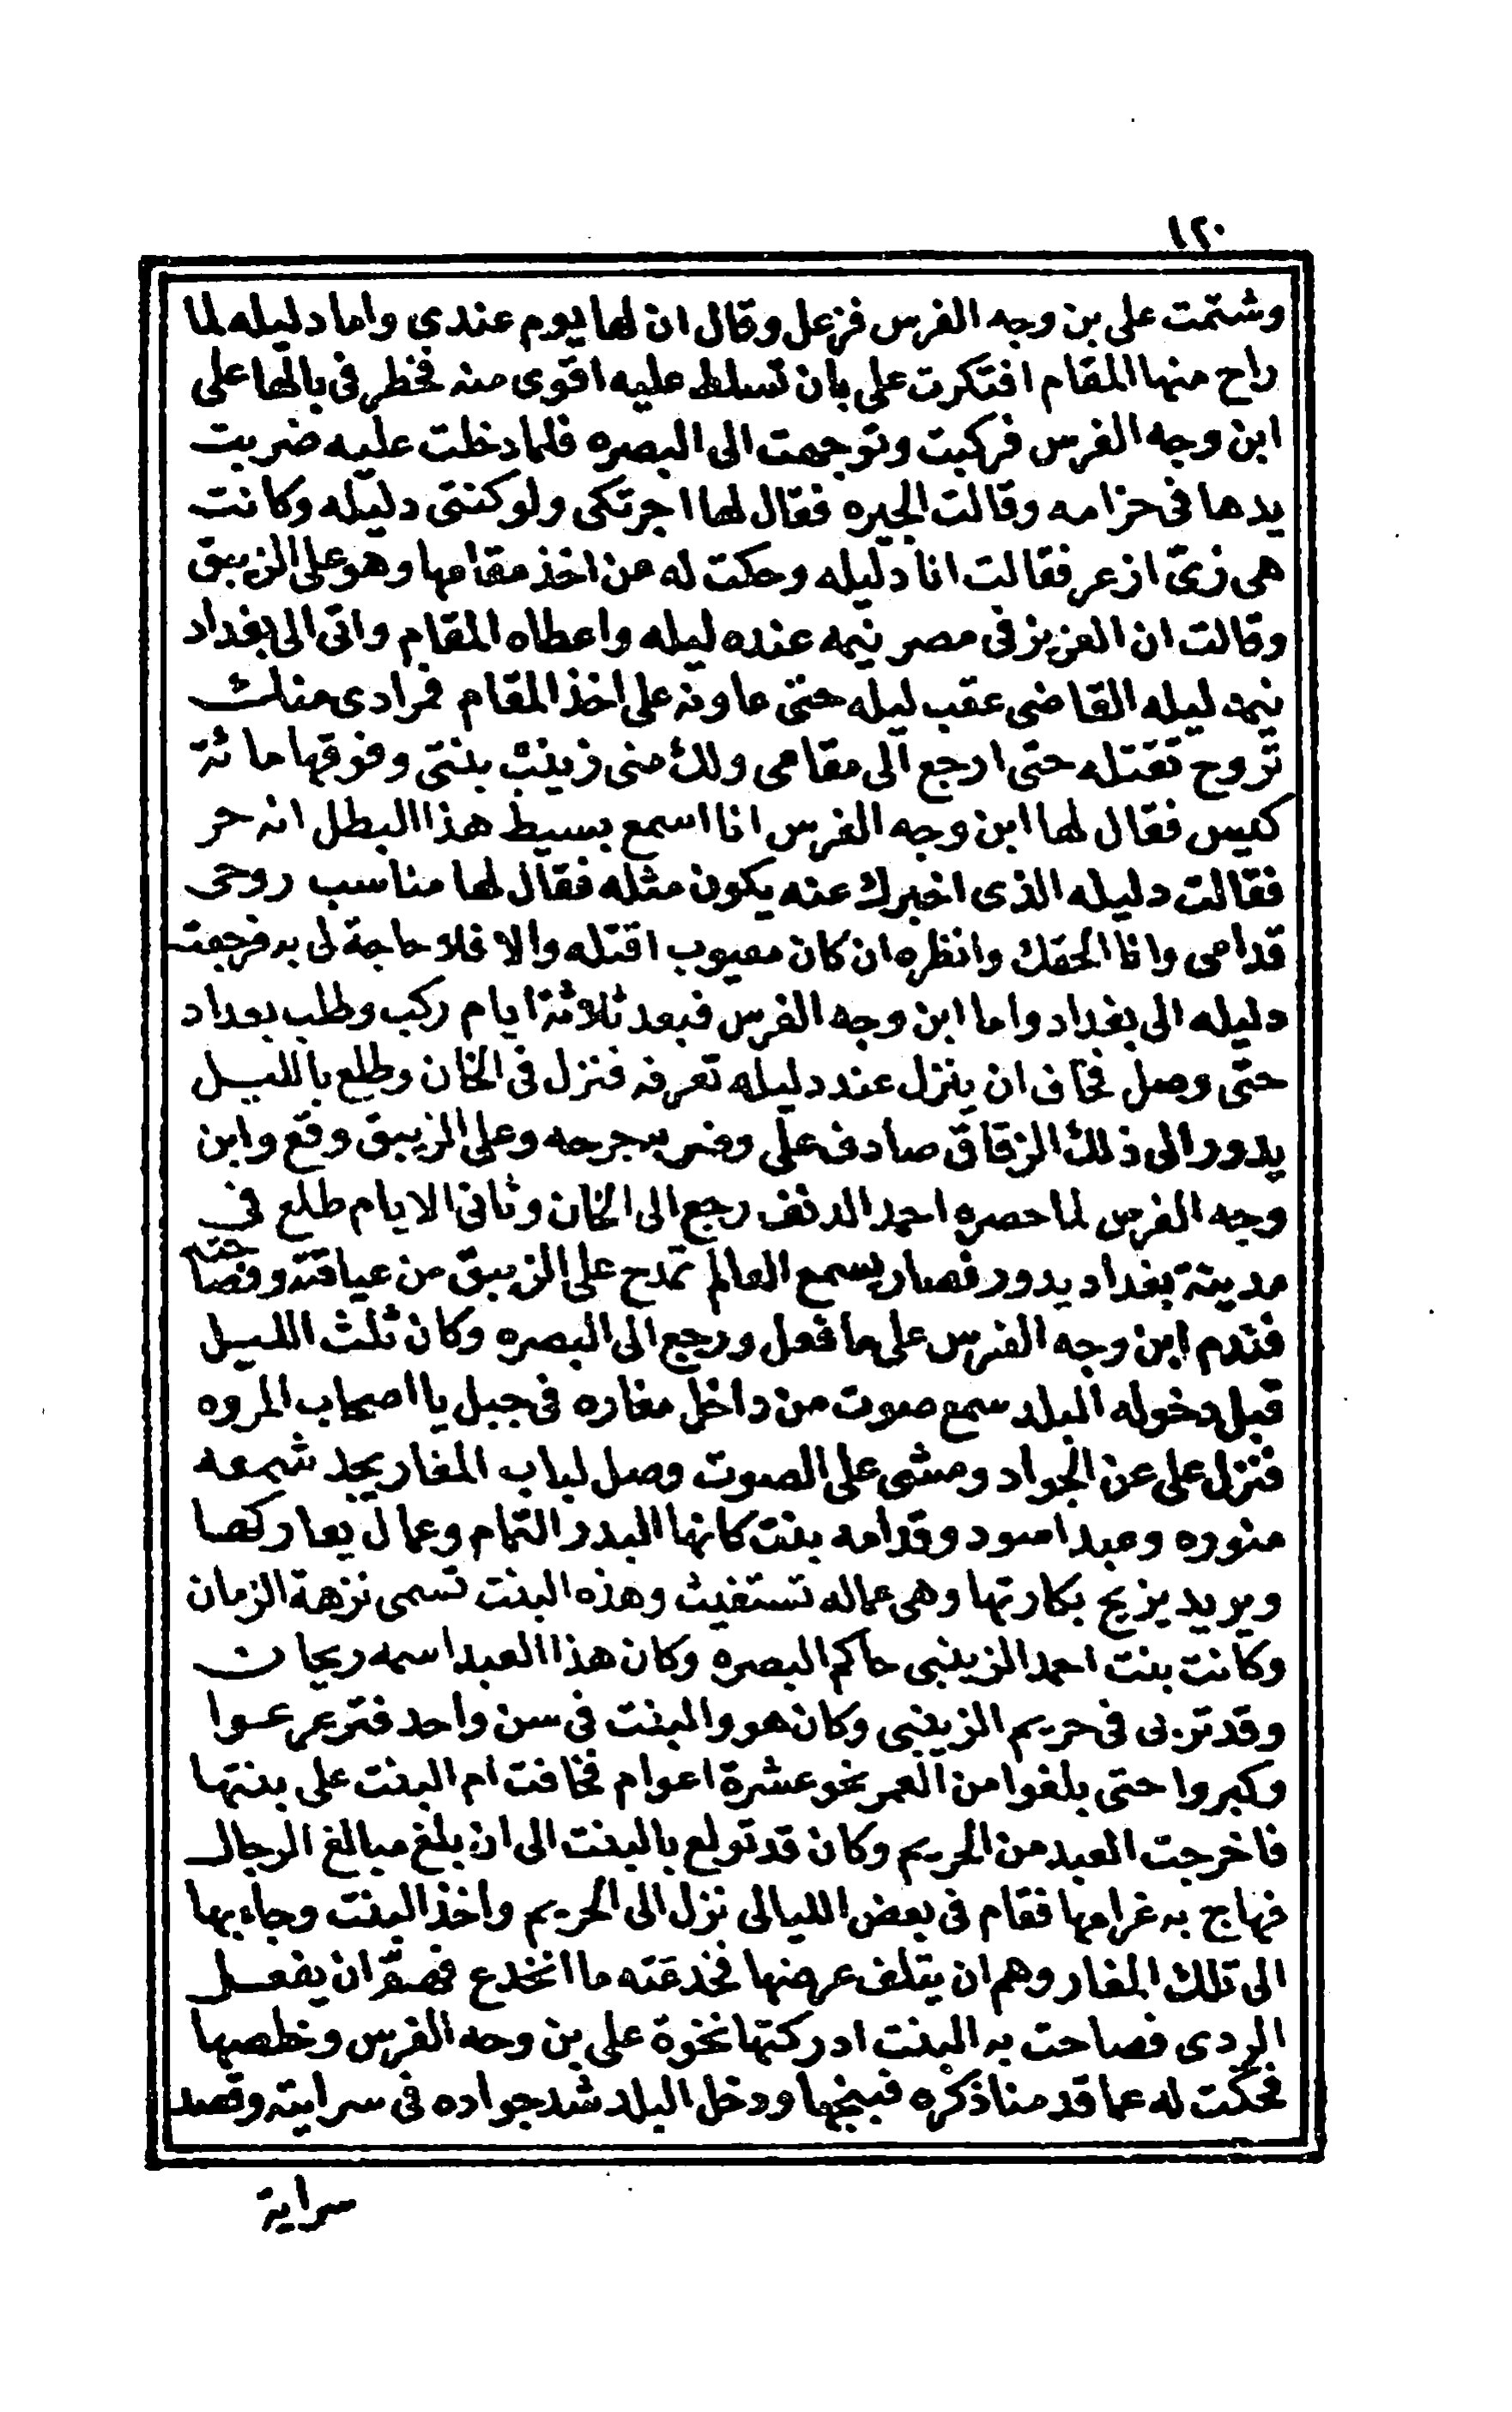 ١٢٠
وشتمت على بن وجه الفرس فزعل وقال ان لها يوم عندى واما دليله لما
راح منها المقام افتكرت على بان تسلط عليه اقوى منه فخطر فى بالها على
ابن وجه الفرس فركبت وتوجهت الى البصره فلما دخلت عليه ضربت
يدها فى حزامه وقالت الجيره فقال لها اجرتكى ولو كنتى دليله وكانت
هى زىّ ازعر فقالت انا دليله وحكت له عن اخذ مقامها وهو على الزيبق
وقالت ان العزيز فى مصر نيمه عنده ليله واعطاه المقام واتى الى بغداد
نيمه ليله القاضى عقب ليله حتى عاونه على اخذ المقام فمرادى منك
تروح تقتله حتى ارجع الى مقامى ولك منى زينب بنتى وفوقها مائة
كيس فقال لها ابن وجه الفرس انا اسمع بسيط هذا البطل انه حر
فقالت دليله الذى اخبرك عنه يكون مثله فقال لها مناسب روحى
قدامى وانا الحقك وانظره ان كان معيوب اقتله والا فلا حاجة لى به فرجعت
دليله الى بغداد واما ابن وجه الفرس فبعد ثلاثة ايام ركب وطلب بغداد
حتى وصل فخاف ان ينزل عند دليله تعرفه فنزل فى الخان وطلع بالليل
يدور الى ذلك الزقاق صادف على وضربه جرحه وعلى الزيبق وقع وابن
وجه الفرس لما حصره احمد الدنف رجع الى الخان وثانى الايام طلع فى
مدينة بغداد يدور فصار يسمع العالم تمدح على الزيبق من عياقته وفصاحته
فندم ابن وجه الفرس على ما فعل ورجع الى البصره وكان ثلث الليل
قبل دخوله البلد سمع صوت من داخل مغاره فى جبل يا اصحاب المروه
فنزل على عن الجواد ومشى على الصوت وصل لباب المغار يجد شمعه
منوره وعبد اسود وقدامه بنت كانها البدر التمام وعمال يعاركها
ويريد يزيح بكارتها وهى عماله تستغيث وهذه البنت تسمى نزهة الزمان
وكانت بنت احمد الزينبى حاكم البصره وكان هذا العبد اسمه ريحان
وقد تربى فى حريم الزينبى وكان هو والبنت فى سن واحد فترعرعوا
وكبروا حتى بلغوا من العمر نحو عشرة اعوام فخافت ام البنت على بنتها
فاخرجت العبد من الحريم وكان قد تولع بالبنت الى ان بلغ مبالغ الرجال
فهاج به غرامها فقام فى بعض الليالى نزل الى الحريم واخذ البنت وجاء بها
الى تلك المغار وهم ان يتلف عرضها فخدعته ما انخدع فهمّ ان يفعل
الردى فصاحت به البنت ادركتها نخوة على بن وجه الفرس وخلصها
فحكت له عما قدمنا ذكره فبنجها ودخل البلد شد جواده فى سرايته وقصد
سراية